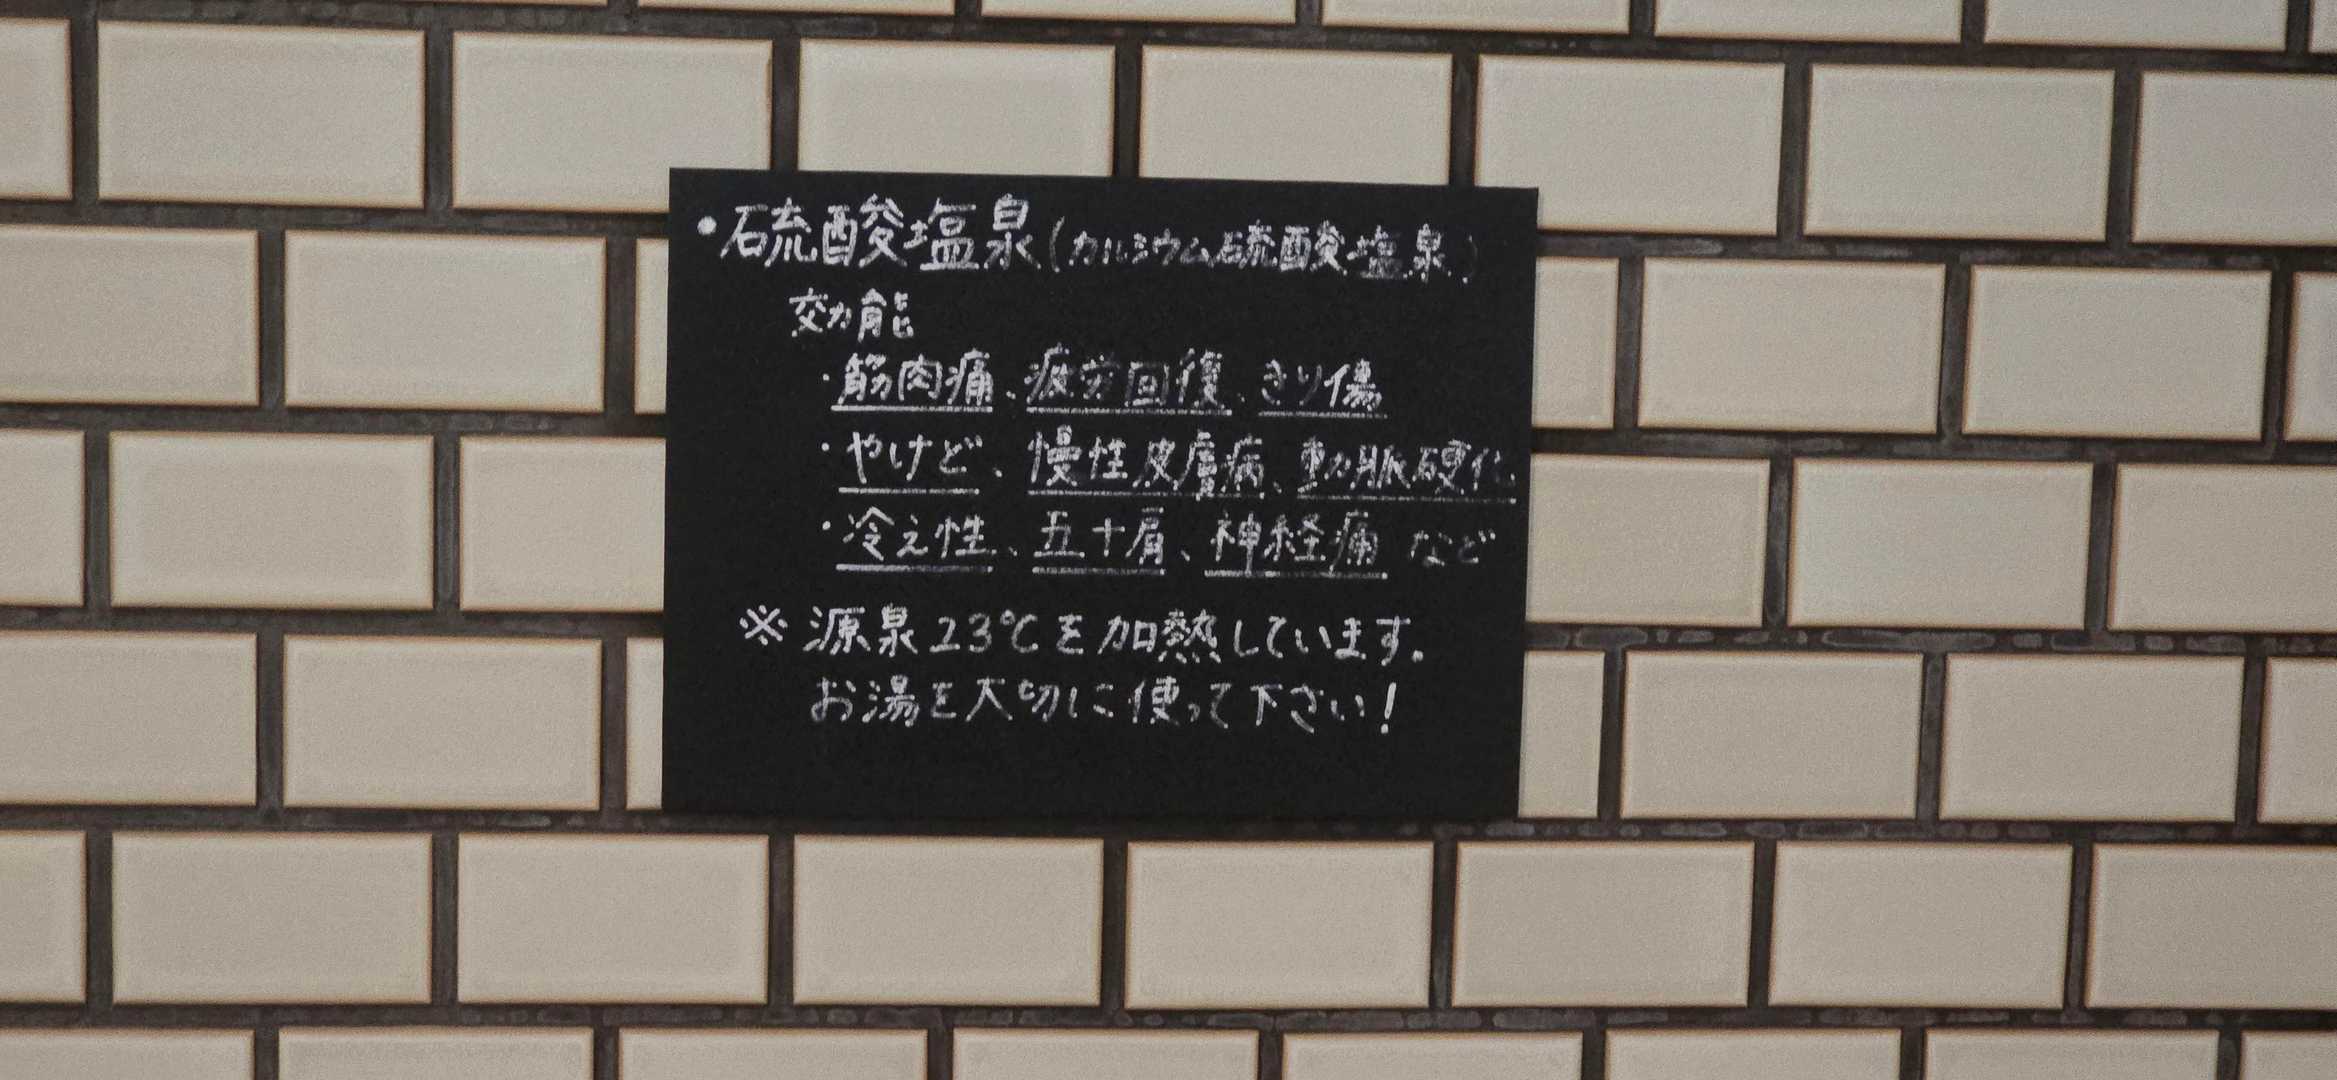 ・硫酸塩泉(カルシウム硫酸塩泉)
効能
・筋肉痛、疲労回復、きり傷
・やけど、慢性皮膚病、動脈硬化
・冷え性、五十肩、神経痛 など
※源泉23℃を加熱しています。
お湯を大切に使って下さい!